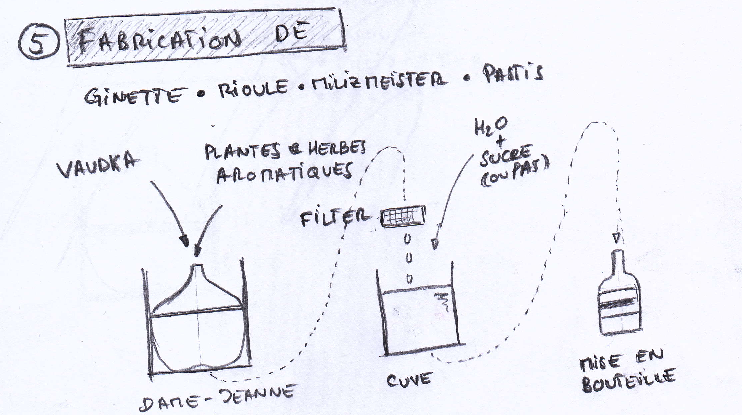 5 FABRICATION DE
GINETTE • RIOULE • MILIZMEISTER • PASTIS
VAUDKA
PLANTES & HERBES
AROMATIQUES
FILTER
H2O
+
SUCRE
(OU PAS)
DAME-JEANNE
CUVE
MISE EN
BOUTEILLE